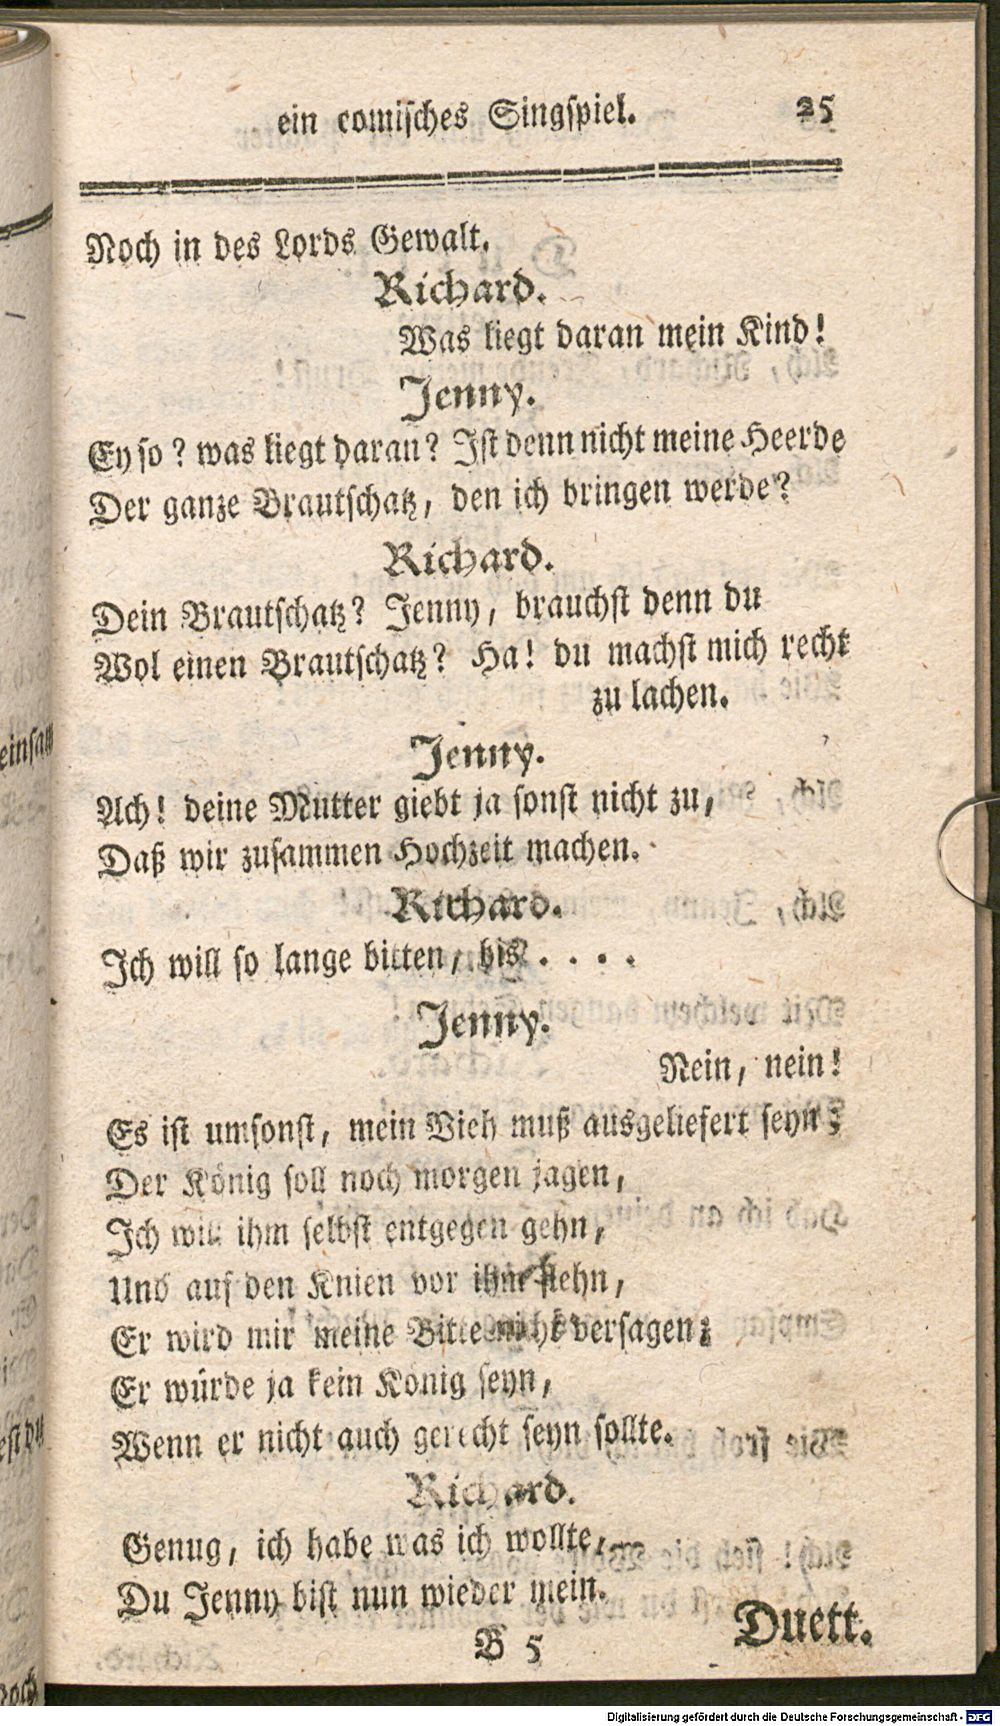 ein comisches Singspiel. 25
Noch in des Lords Gewalt.
Richard.
Was liegt daran mein Kind!
Jenny.
Ey so? was liegt daran? Ist denn nicht meine Heerde
Der ganze Brautschatz, den ich bringen werde?
Richard.
Dein Brautschatz? Jenny, brauchst denn du
Wol einen Brautschatz? Ha! du machst mich recht
zu lachen.
Jenny.
Ach! deine Mutter giebt ja sonst nicht zu,
Daß wir zusammen Hochzeit machen.
Richard.
Ich will so lange bitten, bis . . . .
Jenny.
Nein, nein!
Es ist umsonst, mein Vieh muß ausgeliefert seyn;
Der König soll noch morgen jagen,
Ich will ihm selbst entgegen gehn,
Und auf den Knien vor ihm flehn,
Er wird mir meine Bitte nicht versagen;
Er würde ja kein König seyn,
Wenn er nicht auch gerecht seyn sollte.
Richard.
Genug, ich habe was ich wollte,
Du Jenny bist nun wieder mein.
B 5 Duett.
Digitalisierung gefördert durch die Deutsche Forschungsgemeinschaft - DFG